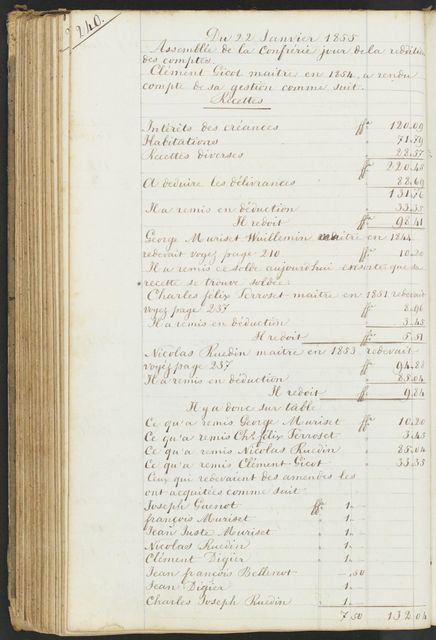 240.
Du 22 Janvier 1855
Assemblée de la Confrérie jour de la reddition
des comptes.
Clément Gicot maitre en 1854, a rendu
compte de sa gestion comme suit.
Recettes
Intérêts des créances ff. 120.09
Habitations 71.79
Recettes diverses 28.57
ff. 220.45
A déduire les délivrances 88.69
131.76
Il a remis en déduction 33.35
Il redoit ff. 98.41
George Muriset Wuillemin maitre en 1844
redevait voyez page 210 ff. 10.20
Il a remis ce solde aujourd'hui ensorte que sa
recette se trouve soldée.
Charles félix Perroset maitre en 1851 redevait
voyez page 237 ff. 8.96
Il a remis en déduction 3.45
Il redoit ff. 5.51
Nicolas Ruedin maitre en 1853 redevait
voyez page 237 ff. 94.88
Il a remis en déduction 85.04
Il redoit ff. 9.84
Il y a donc sur table
Ce qu'a remis George Muriset ff. 10.20
Ce qu'a remis Ch. félix Perroset 3.45
Ce qu'a remis Nicolas Ruedin 85.04
Ce qu'a remis Clément Gicot 33.35
Ceux qui redevaient des amendes les
ont acquitées comme suit
Joseph Guenot ff. 1.-
françois Muriset " 1.-
Jean Juste Muriset " 1.-
Nicolas Ruedin " 1.-
Clément Digier " 1.-
Jean françois Bellenot -.50
Jean Digier " 1.-
Charles Joseph Ruedin " 1.-
7.50 132.04